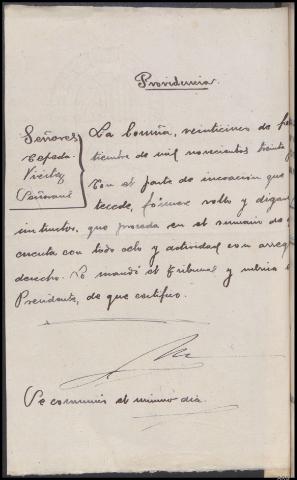 Providencia
Señores
Cepeda
Viéitez
La Coruña, veinticinco de
tiembre de mil novecientos treinta
Con el parte de incoación que
tecede, fórmese rollo y
instructor, que proceda en el sumario de
cuenta con todo celo y actividad con
derecho. Lo mandó el Tribunal y rubrica el
Presidente, de que certifico.
Se comunicó el mismo día.